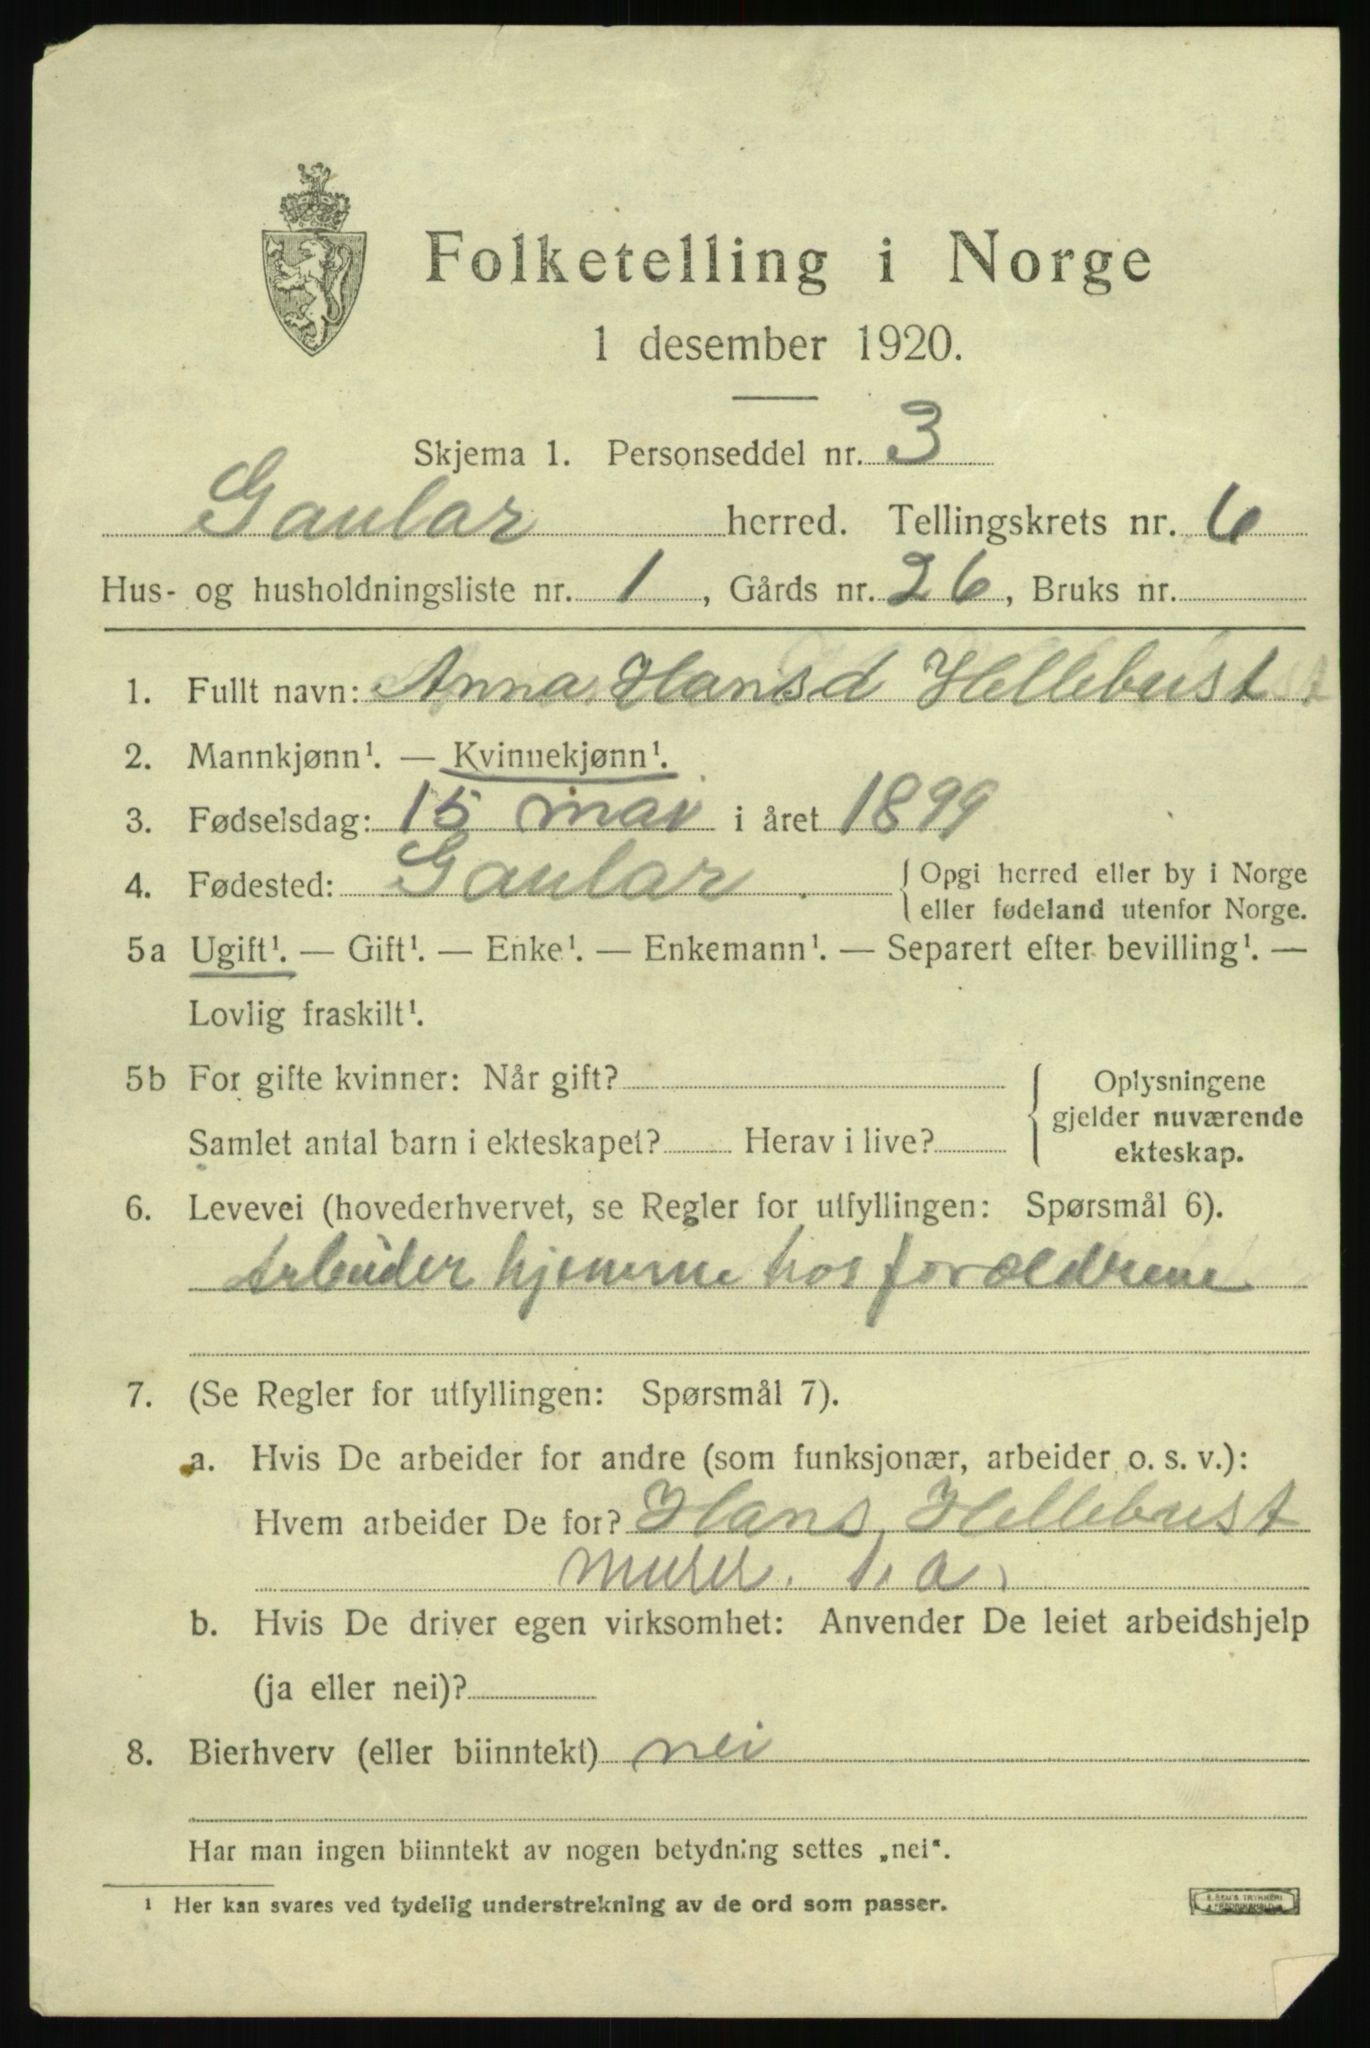 Folketelling i Norge
1 desember 1920.
Skjema 1. Personseddel nr. 3
Gaular herred. Tellingskrets nr. 6
Hus- og husholdningsliste nr. 1, Gårds nr. 26, Bruks nr.
1. Fullt navn: Anna Hansd Hellebust
2. Mannkjønn¹. — Kvinnekjønn¹.
3. Fødselsdag: 15 mai i året 1899
4. Fødested: Gaular { Opgi herred eller by i Norge
eller fødeland utenfor Norge.
5a Ugift¹. — Gift¹. — Enke¹. — Enkemann¹. — Separert efter bevilling¹. —
Lovlig fraskilt¹.
5b For gifte kvinner: Når gift? { Oplysningene
gjelder nuværende
Samlet antal barn i ekteskapet? Herav i live? ekteskap.
6. Levevei (hovederhvervet, se Regler for utfyllingen: Spørsmål 6).
Arbeider hjemme hos forældrene
7. (Se Regler for utfyllingen: Spørsmål 7).
a. Hvis De arbeider for andre (som funksjonær, arbeider o. s. v.):
Hvem arbeider De for? Hans Hellebust
murer. 1. a.
b. Hvis De driver egen virksomhet: Anvender De leiet arbeidshjelp
(ja eller nei)?
8. Bierhverv (eller biinntekt) nei
Har man ingen biinntekt av nogen betydning settes „nei“.
¹ Her kan svares ved tydelig understrekning av de ord som passer.